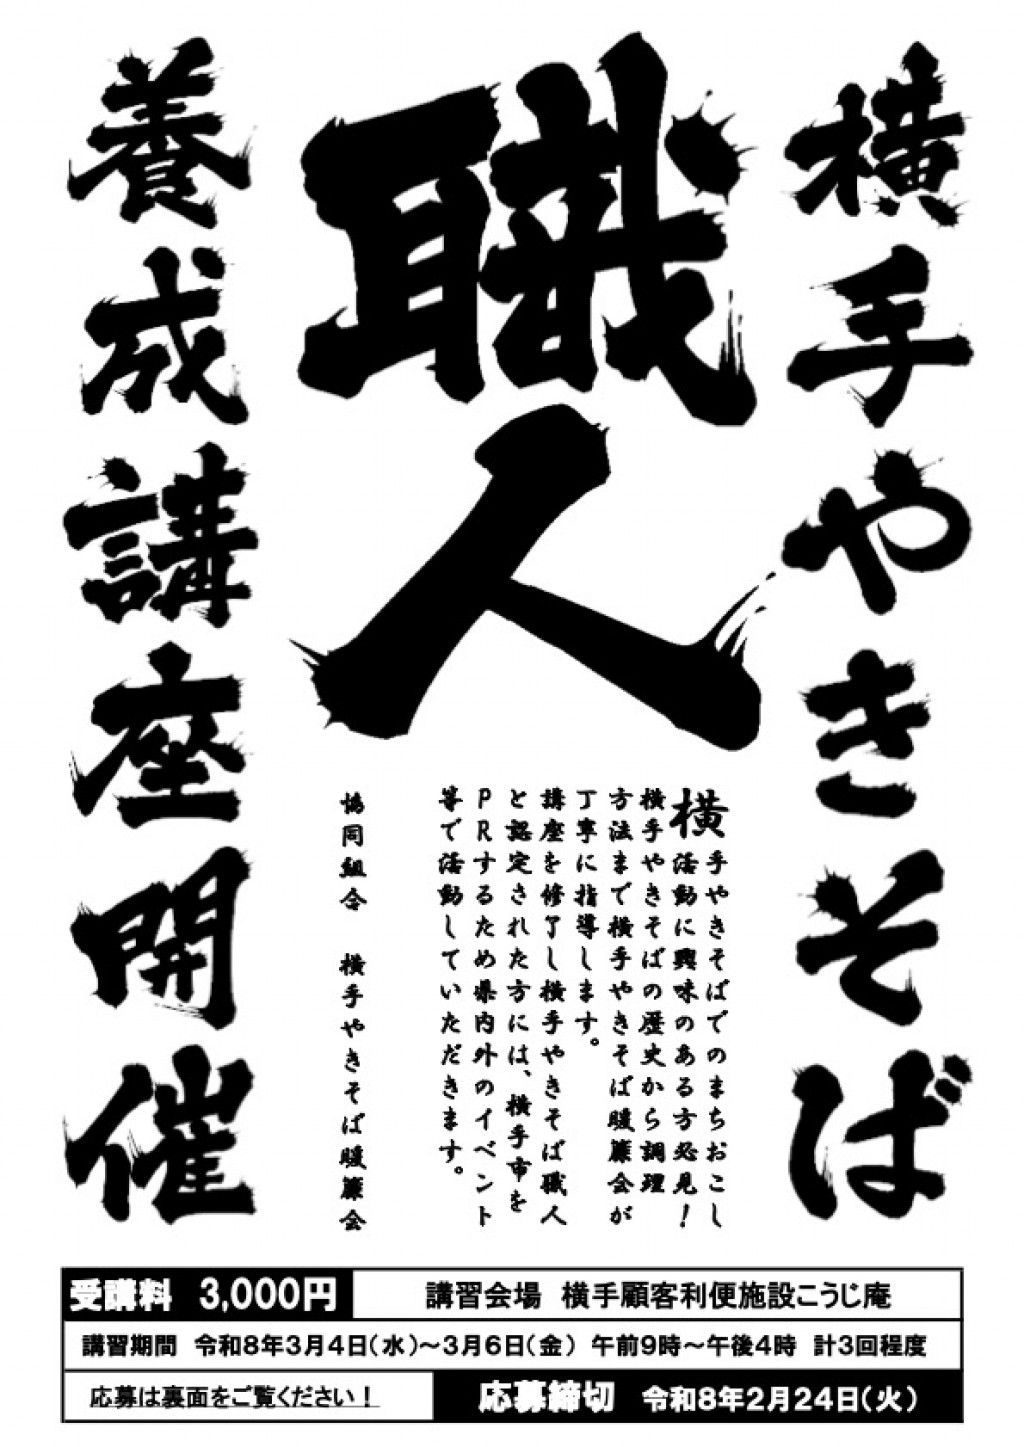 横手やきそば
職人
養成講座開催
横手やきそばでのまちおこし
活動に興味のある方必見！
横手やきそばの歴史から調理
方法まで横手やきそば暖簾会が
丁寧に指導します。
講座を修了し横手やきそば職人
と認定された方には、横手市を
PRするため県内外のイベント
等で活動していただきます。
協同組合　横手やきそば暖簾会
受講料　3,000円
講習会場　横手顧客利便施設こうじ庵
講習期間　令和8年3月4日（水）～3月6日（金）　午前9時～午後4時　計3回程度
応募は裏面をご覧ください！
応募締切　令和8年2月24日（火）